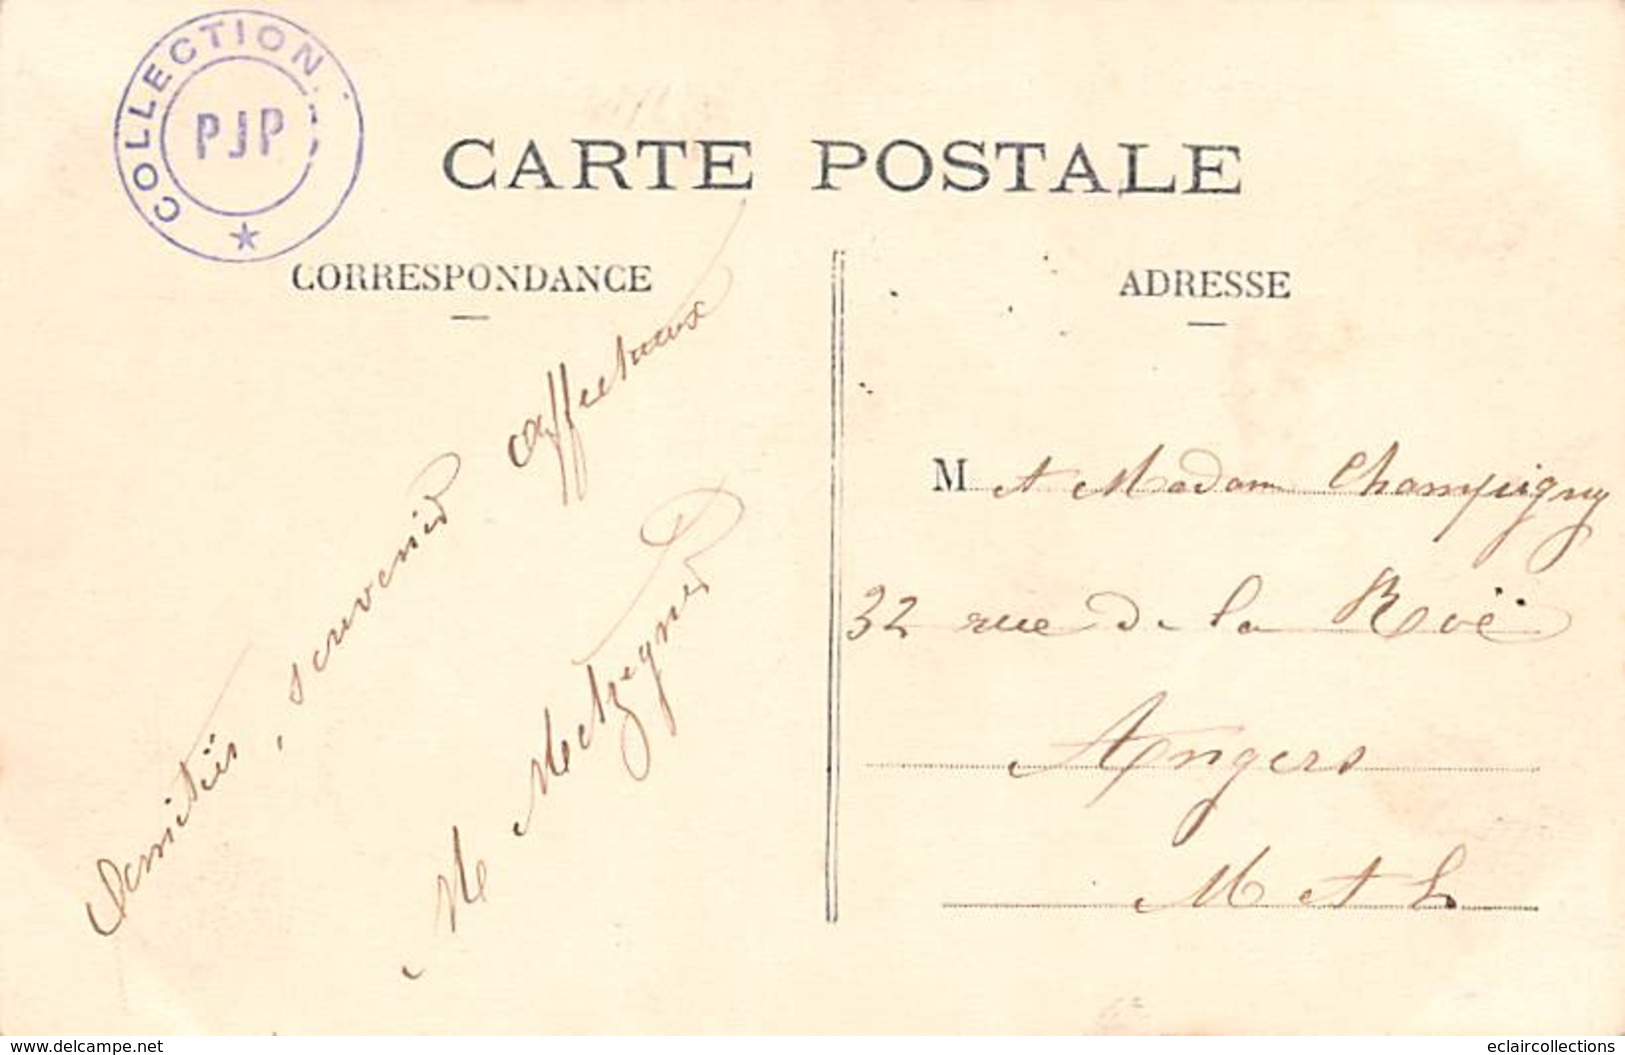 COLLECTION
PJP
CARTE POSTALE
CORRESPONDANCE
ADRESSE
Amitiés, souvenir affectueux
Me Metzegner
M et Madam Champigny
32 rue de la Roë
Angers
M et L
www.delcampe.net
eclaircollections